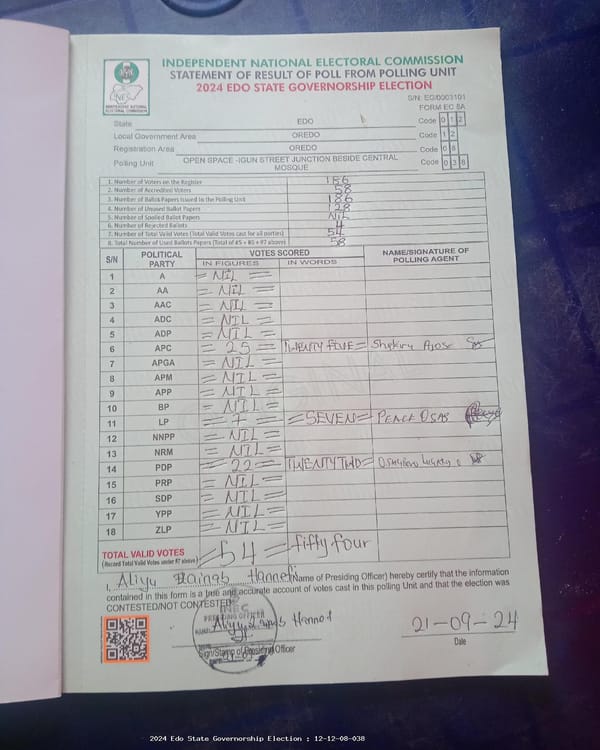 INDEPENDENT NATIONAL ELECTORAL COMMISSION
STATEMENT OF RESULT OF POLL FROM POLLING UNIT
2024 EDO STATE GOVERNORSHIP ELECTION
S/N: EG/0003101
FORM EC 8A
State EDO Code 0 1 2
Local Government Area OREDO Code 1 2
Registration Area OREDO Code 0 8
Polling Unit OPEN SPACE -IGUN STREET JUNCTION BESIDE CENTRAL MOSQUE Code 0 3 8
1. Number of Voters on the Register 186
2. Number of Accredited Voters 58
3. Number of Ballot Papers Issued to the Polling Unit 186
4. Number of Unused Ballot Papers 128
5. Number of Spoiled Ballot Papers NIL
6. Number of Rejected Ballots 4
7. Number of Total Valid Votes (Total Valid Votes cast for all parties) 54
8. Total Number of Used Ballots Papers (Total of #5 + #6 + #7 above) 58
S/N POLITICAL PARTY VOTES SCORED NAME/SIGNATURE OF POLLING AGENT
IN FIGURES IN WORDS
1 A = NIL =
2 AA = NIL =
3 AAC = NIL =
4 ADC = NIL =
5 ADP = NIL =
6 APC = 25 = TWENTY FIVE =
7 APGA = NIL =
8 APM = NIL =
9 APP = NIL =
10 BP = NIL =
11 LP = 7 = = SEVEN = PEACE OSAS
12 NNPP = NIL =
13 NRM = NIL =
14 PDP = 22 = TWENTY TWO =
15 PRP = NIL =
16 SDP = NIL =
17 YPP = NIL =
18 ZLP = NIL =
TOTAL VALID VOTES = 54 = fifty four
(Record Total Valid Votes under #7 above)
I, Aliyu Zainab (Name of Presiding Officer) hereby certify that the information
contained in this form is a true and accurate account of votes cast in this polling Unit and that the election was
CONTESTED/NOT CONTESTED
INEC
PRESIDING OFFICER
21-09-24
Sign/Stamp of Presiding Officer
Date
2024 Edo State Governorship Election : 12-12-08-038